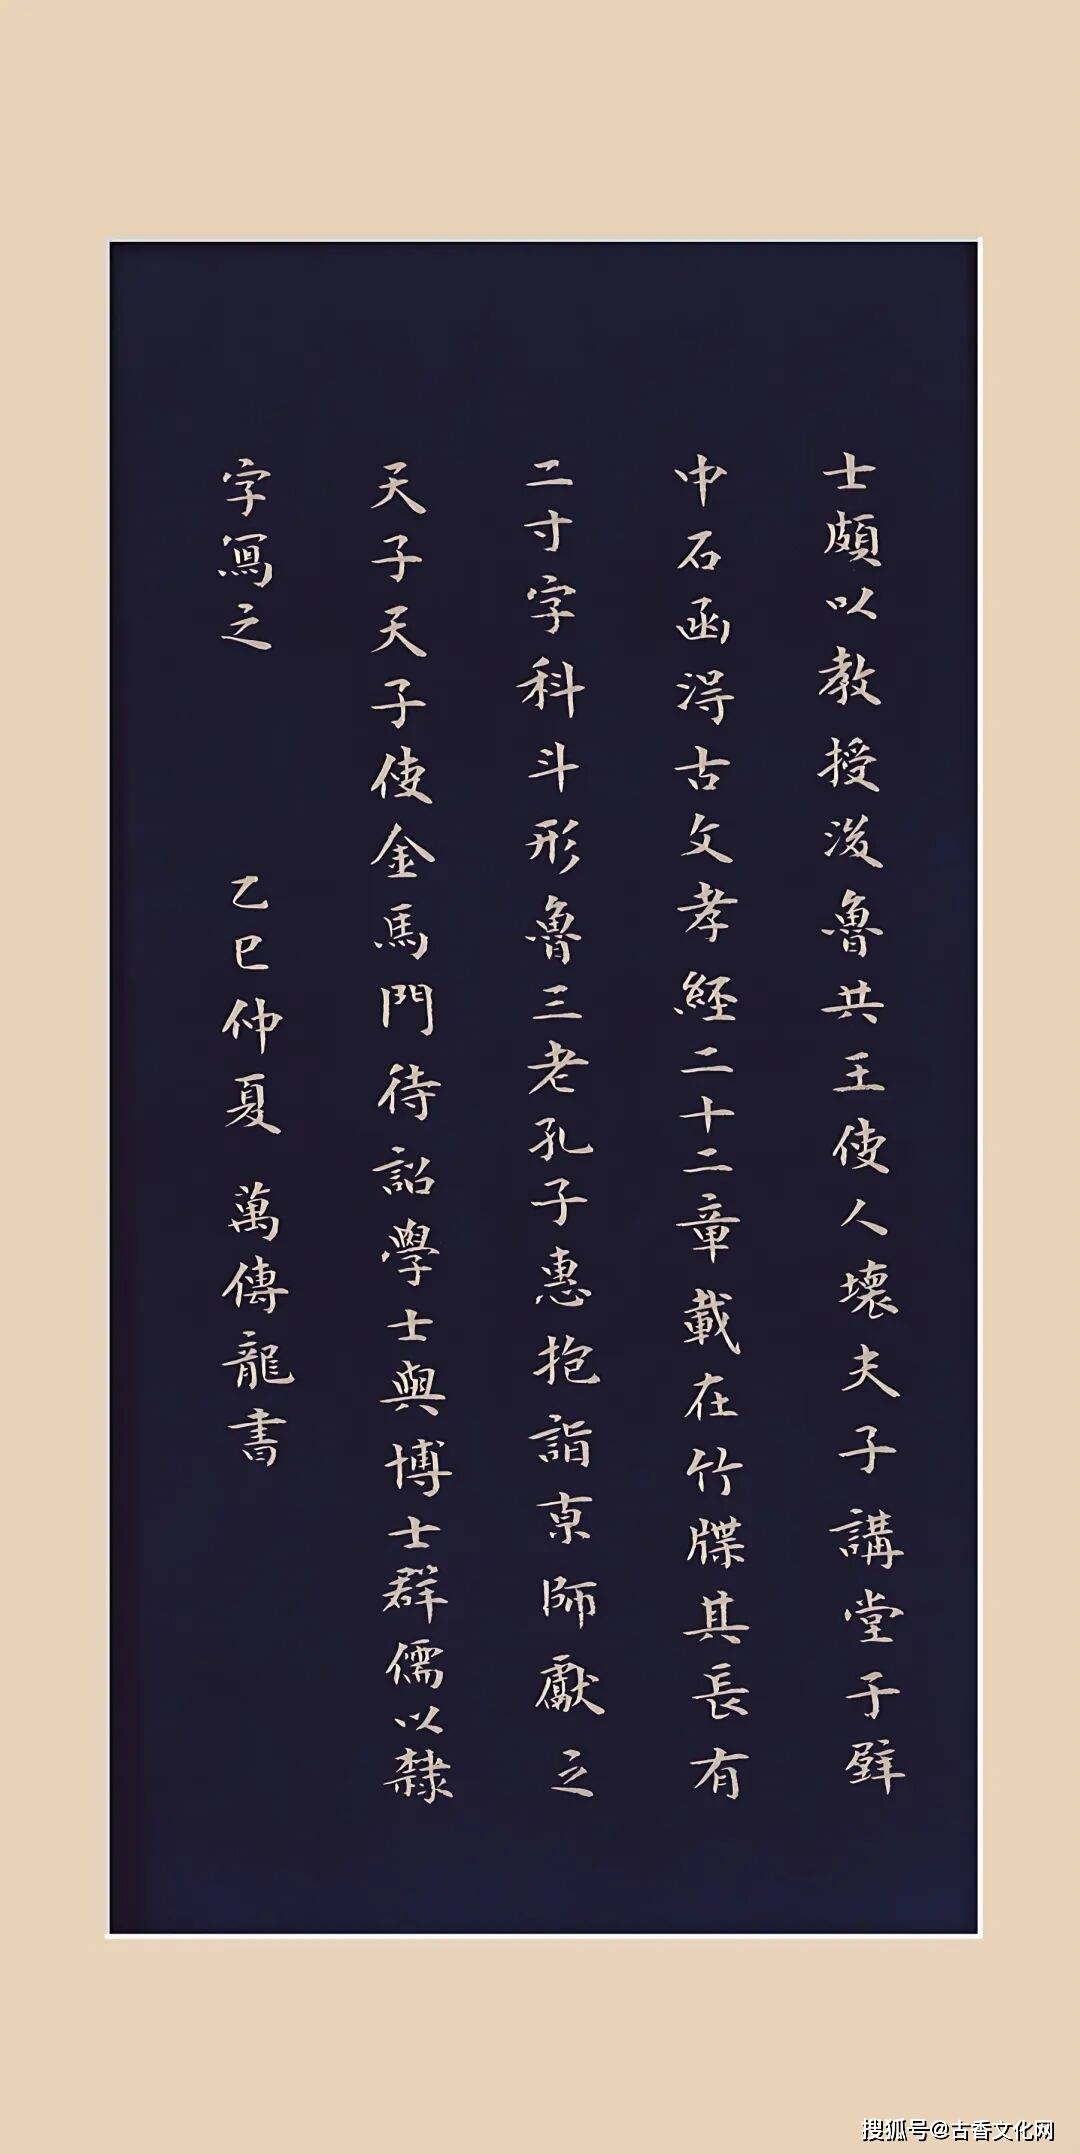 士頗以教授後魯共王使人壞夫子講堂于壁
中石函得古文孝經二十二章載在竹牒其長有
二寸字科斗形魯三老孔子惠抱詣京師獻之
天子天子使金馬門待詔學士與博士群儒以隸
字寫之
乙巳仲夏 萬傳龍書
搜狐号@古香文化网